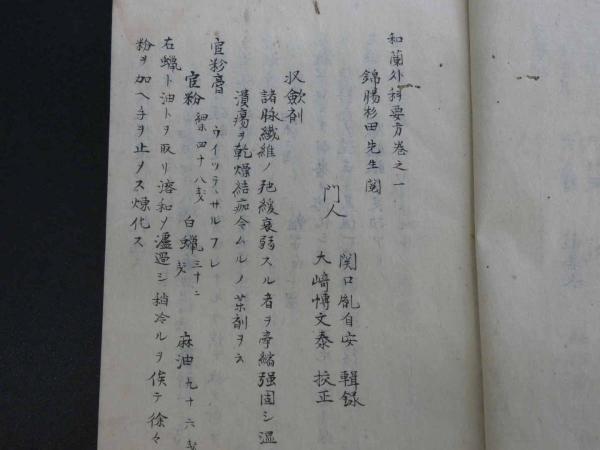 和蘭外科要方巻之一
錦腸杉田先生閲
門人 関口胤自安 輯録
大﨑博文泰 校正
収歛剤
諸脉繊維ノ弛緩衰弱スル者ヲ牽縮强固シ温
潰瘍ヲ乾燥結痂令ムルノ薬剤ヲ云
官粉膏 ウイツテサルフレ
官粉 細末四十八戔 白蝋 三十二戔 麻油 九十六戔
右蝋ト油トヲ取リ溶和メ濾過シ稍冷ルヲ俟テ徐々
粉ヲ加ヘ手ヲ止メス煉化ス